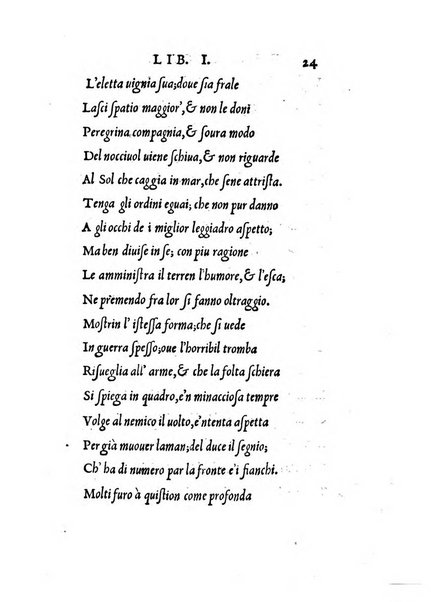 LIB. I. 24
L'eletta uignia sua;doue sia frale
Lasci spatio maggior',& non le doni
Peregrina compagnia,& soura modo
Del nocciuol uiene schiua,& non riguarde
Al Sol che caggia in mar,che sene attrista.
Tenga gli ordini eguai; che non pur danno
A gli occhi de i miglior leggiadro aspetto;
Ma ben diuise in se; con piu ragione
Le amministra il terren l'humore,& l'esca;
Ne premendo fra lor si fanno oltraggio.
Mostrin l' istessa forma;che si uede
In guerra spesso;oue l'horribil tromba
Risueglia all' arme,& che la folta schiera
Si spiega in quadro,e'n minacciosa tempre
Volge al nemico il uolto,e'ntenta aspetta
Per già muouer la man;del duce il segnio;
Ch' ha di numero par la fronte e'i fianchi.
Molti furo à quistion come profonda